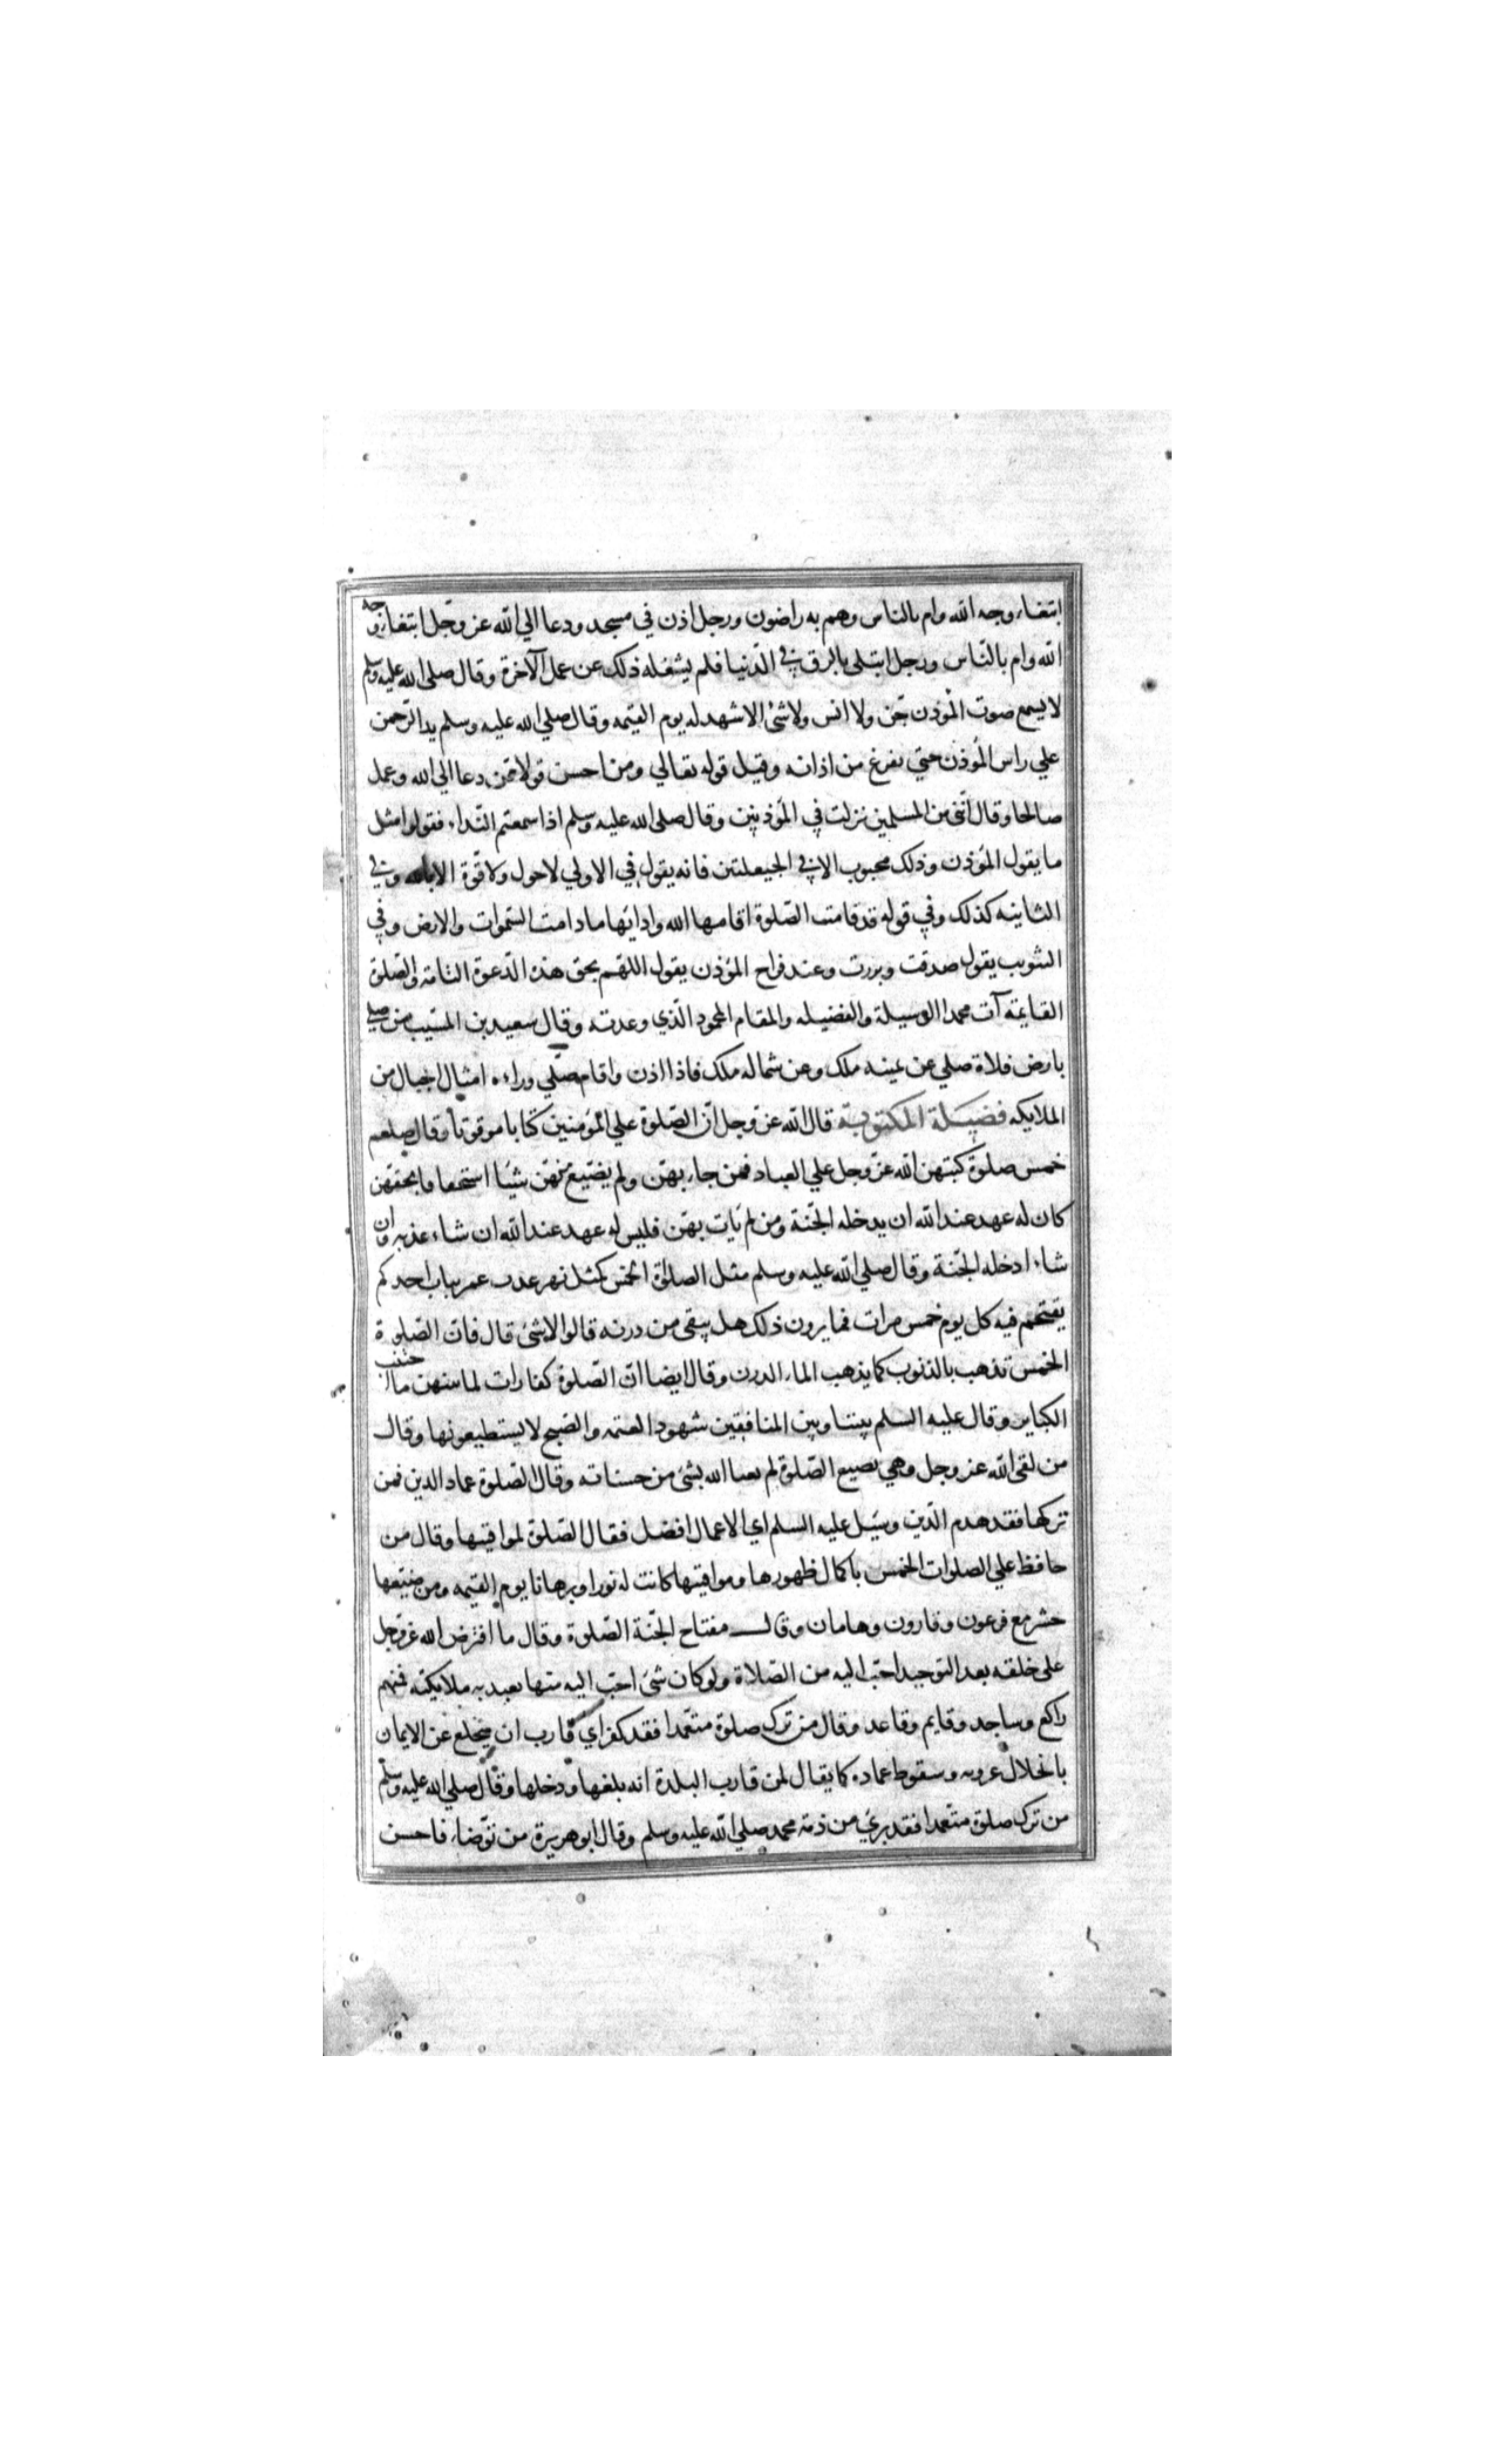 ابتغاء وجه الله وام بالناس وهم به راضون ورجل اذن في مسجد ودعا الي الله عز وجل ابتغاء وجه
الله وام بالناس ورجل ابتلى بالرق في الدنيا فلم يشغله ذلك عن عمل الآخرة وقال صلى الله عليه وسلم
لا يسمع صوت المؤذن جن ولا انس ولا شئ الا شهد له يوم القيمه وقال صلي الله عليه وسلم يد الرحمن
علي راس المؤذن حتي يفرغ من اذانه وقيل قوله تعالي ومن احسن قولا ممن دعا الي الله وعمل
صالحا وقال انني من المسلمين نزلت في المؤذنين وقال صلى الله عليه وسلم اذا سمعتم النداء فقولوا مثل
ما يقول المؤذن وذلك محبوب الا في الحيعلتين فانه يقول في الاولي لا حول ولا قوة الا بالله وفي
الثانيه كذلك وفي قوله قد قامت الصلوة اقامها الله وادامها ما دامت السموات والارض وفي
التثويب يقول صدقت وبررت وعند فراح المؤذن يقول اللهم بحق هذه الدعوة التامه والصلوة
القايمة آت محمدا الوسيلة والفضيله والمقام المحمود الذي وعدته وقال سعيد بن المسيب من صلي
بارض فلاة صلي عن يمينه ملك وعن شماله ملك فاذا اذن واقام صلي وراءه امثال الجبال من
الملايكه فضيلة المكتوبة قال الله عز وجل ان الصلوة علي المؤمنين كتابا موقوتا وقال صلعم
خمس صلوة كتبهن الله عز وجل علي العباد فمن جاء بهن ولم يضيع منهن شيئا استخفافا بحقهن
كان له عهد عند الله ان يدخله الجنة ومن لم يات بهن فليس له عهد عند الله ان شاء عذبه وان
شاء ادخله الجنة وقال صلي الله عليه وسلم مثل الصلوة الخمس كمثل نهر عذب عمر بباب احدكم
يقتحم فيه كل يوم خمس مرات فما يرون ذلك هل يبقى من درنه قالوا لا شئ قال فان الصلوة
الخمس تذهب بالذنوب كما يذهب الماء الدرن وقال ايضا ان الصلوة كفارات لما بينهن ما اجتنب
الكباير وقال عليه السلم بيننا وبين المنافقين شهود العتمه والصبح لا يستطيعونها وقال
من لقى الله عز وجل وهي يضيع الصلوة لم يعبا الله بشئ من حسناته وقال الصلوة عماد الدين فمن
تركها فقد هدم الدين وسيل عليه السلم اي الاعمال افضل فقال الصلوة لمواقيتها وقال من
حافظ علي الصلوات الخمس باكمال طهورها ومواقيتها كانت له نورا وبرهانا يوم القيمه ومن ضيعها
حشر مع فرعون وقارون وهامان وقال مفتاح الجنة الصلوة وقال ما افترض الله عز وجل
على خلقه بعد التوحيد احب اليه من الصلاة ولو كان شئ احب اليه منها تعبد به ملايكته فمنهم
راكع وساجد وقايم وقاعد وقال من ترك صلوة متعمدا فقد كفر اي قارب ان ينخلع عن الايمان
بانحلال عروه وسقوط عماده كما يقال لمن قارب البلدة انه بلغها ودخلها وقال صلي الله عليه وسلم
من ترك صلوة متعمدا فقد برئ من ذمة محمد صلي الله عليه وسلم وقال ابو هريرة من توضاء فاحسن